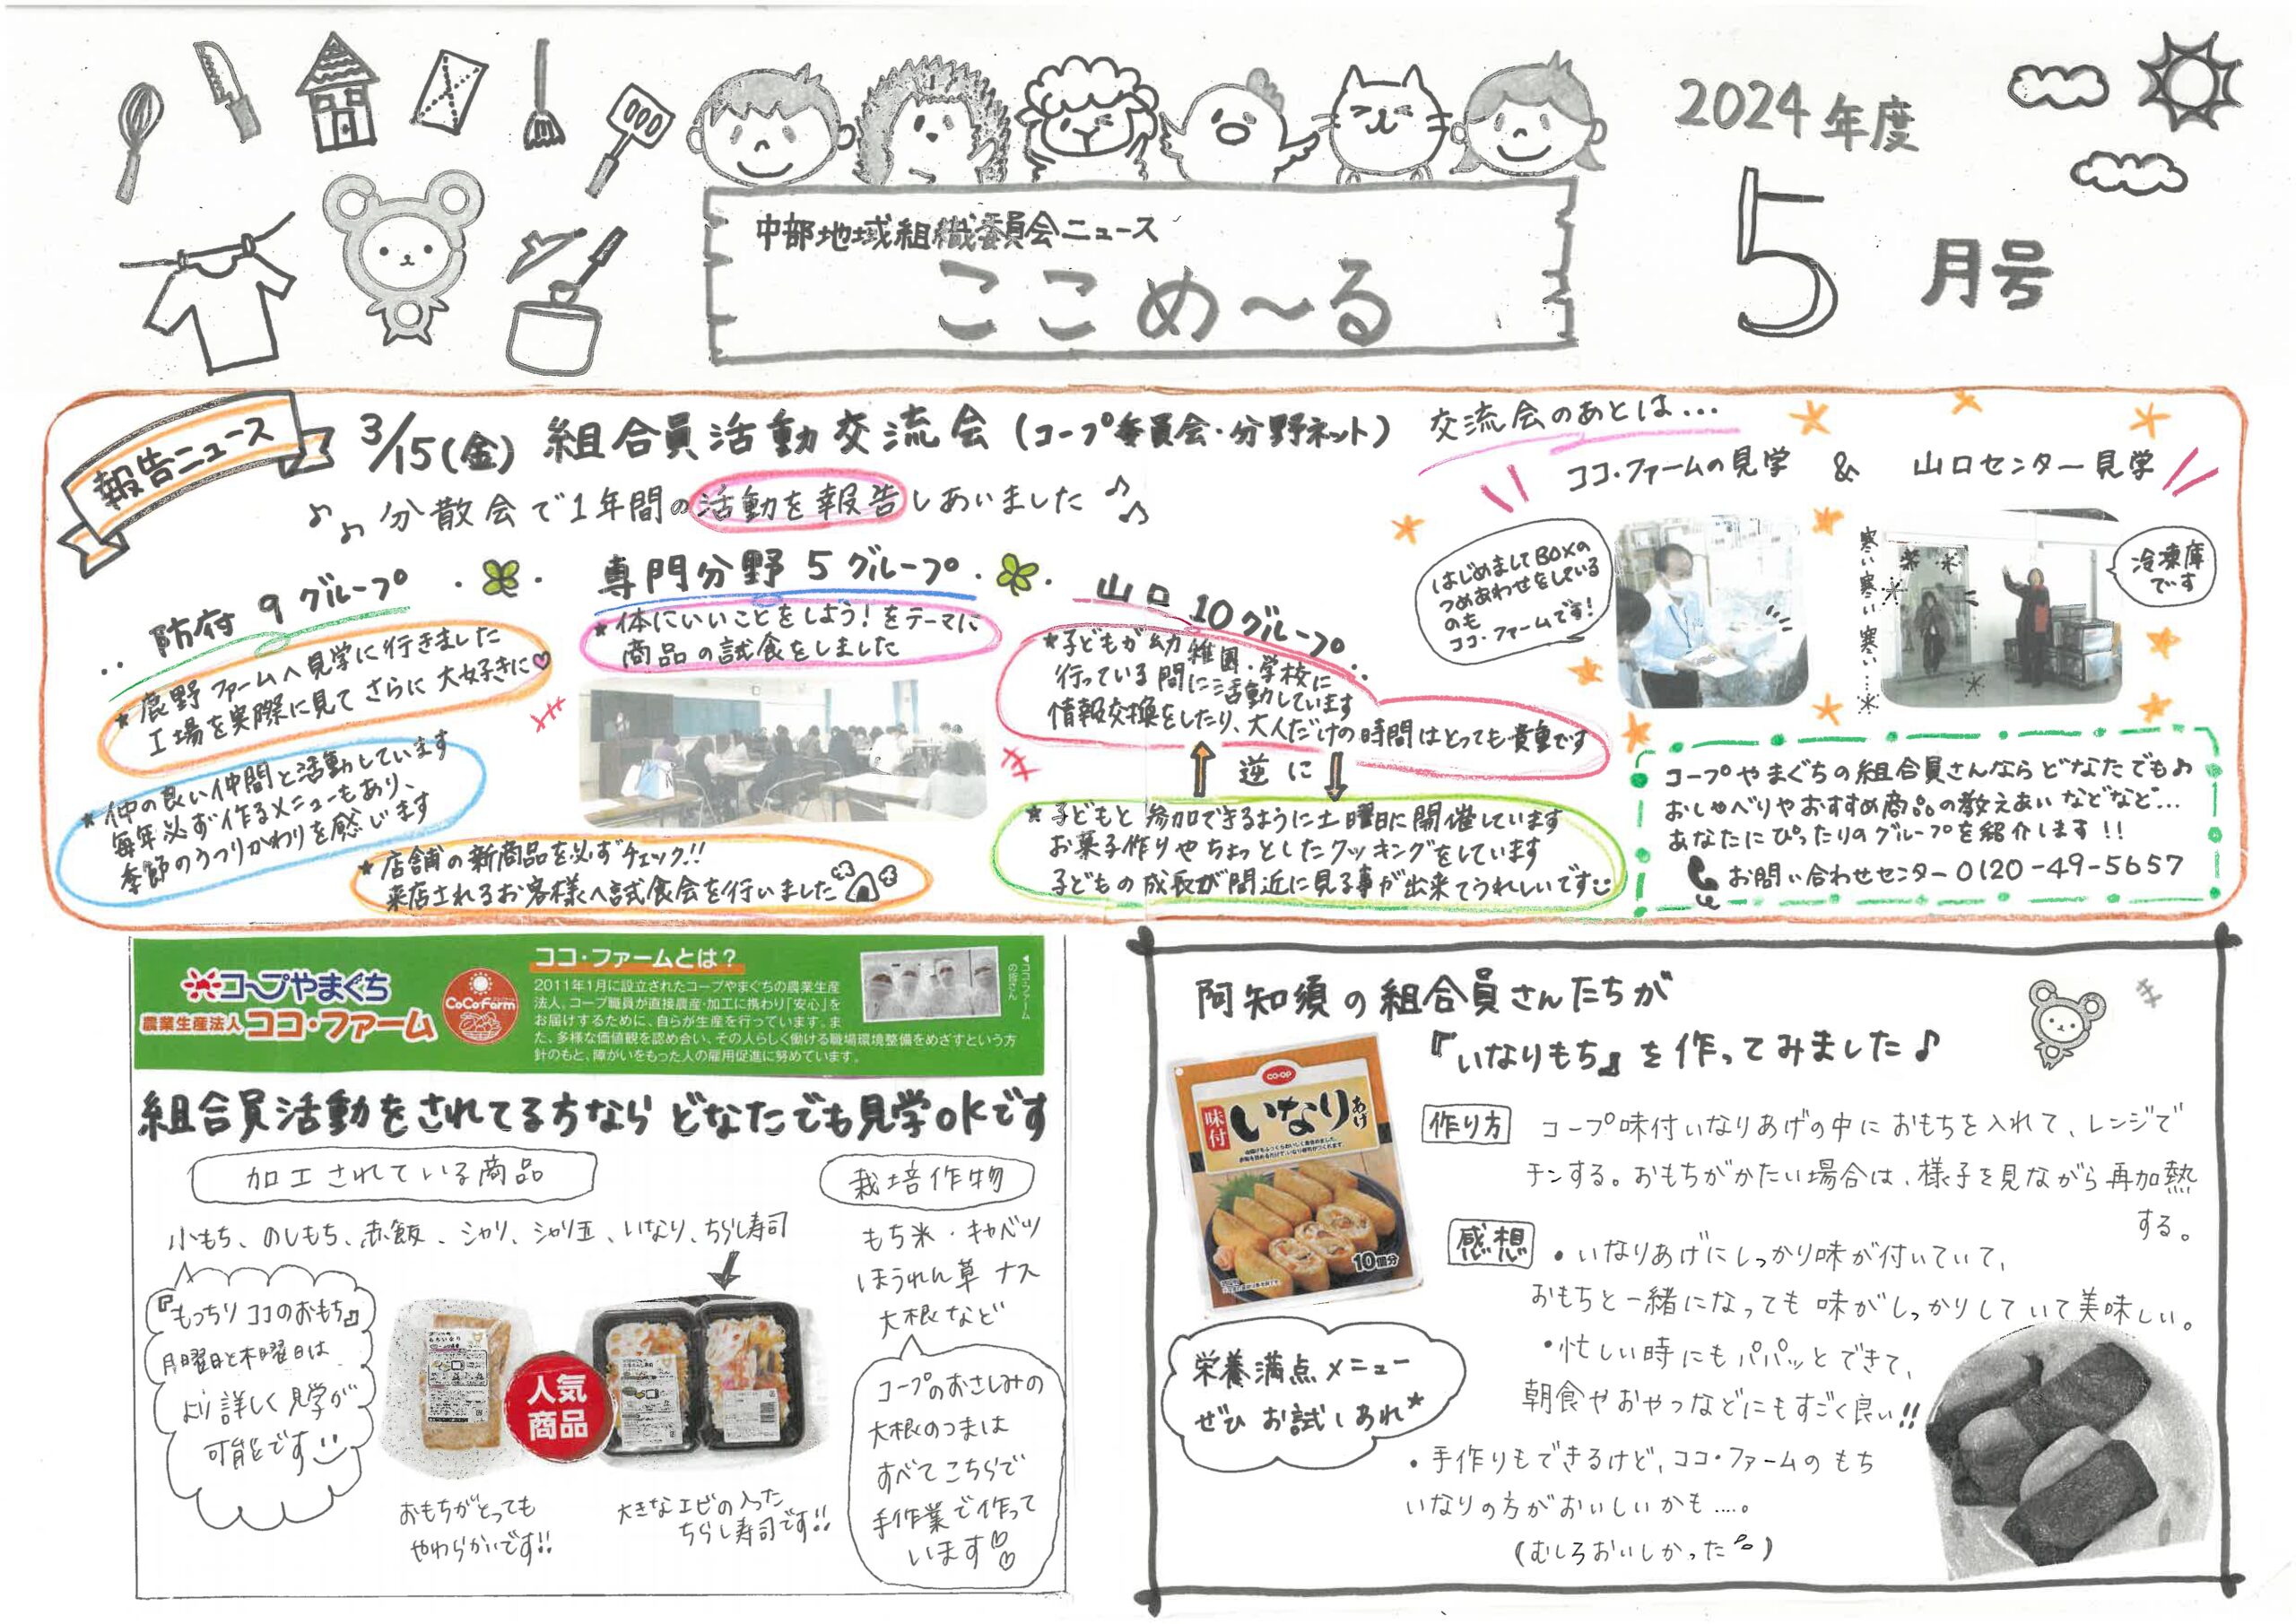 2024年度
5月号
中部地域組織委員会ニュース
ここめ～る
報告ニュース
3/15(金) 組合員活動交流会(コープ委員会・分野ネット)
♪♪分散会で1年間の活動を報告しあいました♪♪
防府 9グループ
★鹿野ファームへ見学に行きました
工場を実際に見てさらに大好きに♡
★仲の良い仲間と活動しています
毎年必ず作るメニューもあり、
季節のうつりかわりを感じます
専門分野 5グループ
★体にいいことをしよう!をテーマに
商品の試食をしました
★店舗の新商品を必ずチェック!!
来店されるお客様へ試食会を行いました
山口 10グループ
★子どもが幼稚園・学校に
行っている間に活動しています
情報交換をしたり、大人だけの時間はとっても貴重です
↑逆に↓
★子どもと参加できるように土曜日に開催しています
お菓子作りやちょっとしたクッキングをしています
子どもの成長が間近に見る事が出来てうれしいです
交流会のあとは…
ココ・ファームの見学 & 山口センター見学
はじめましてBOXの
つめあわせをしている
のも
ココ・ファームです!
寒い寒い寒い…
冷凍庫
です
コープやまぐちの組合員さんならどなたでも♪
おしゃべりやおすすめ商品の教えあいなどなど…
あなたにぴったりのグループを紹介します!!
お問い合わせセンター 0120-49-5657
コープやまぐち
農業生産法人ココ・ファーム
CoCoFarm
ココ・ファームとは?
2011年1月に設立されたコープやまぐちの農業生産
法人。コープ職員が直接農産・加工に携わり「安心」を
お届けするために、自らが生産を行っています。ま
た、多様な価値観を認め合い、その人らしく働ける職場環境整備をめざすという方
針のもと、障がいをもった人の雇用促進に努めています。
◀ココ・ファーム
の皆さん
組合員活動をされてる方なら どなたでも見学OKです
加工されている商品
小もち、のしもち、赤飯、シャリ、シャリ玉、いなり、ちらし寿司
『もっちりココのおもち』
月曜日と木曜日は
より詳しく見学が
可能です
人気
商品
おもちがとっても
やわらかいです!!
大きなエビの入った
ちらし寿司です!!
栽培作物
もち米・キャベツ
ほうれん草 ナス
大根など
コープのおさしみの
大根のつまは
すべてこちらで
手作業で作って
います♡♡
阿知須の組合員さんたちが
『いなりもち』を作ってみました♪
co-op
味付
いなりあげ
10個分
作り方
コープ味付いなりあげの中におもちを入れて、レンジで
チンする。おもちがかたい場合は、様子を見ながら再加熱
する。
感想
・いなりあげにしっかり味が付いていて、
おもちと一緒になっても味がしっかりしていて美味しい。
・忙しい時にもパパッとできて、
朝食やおやつなどにもすごく良い!!
・手作りもできるけど、ココ・ファームのもち
いなりの方がおいしいかも….。
(むしろおいしかった)
栄養満点メニュー
ぜひお試しあれ★